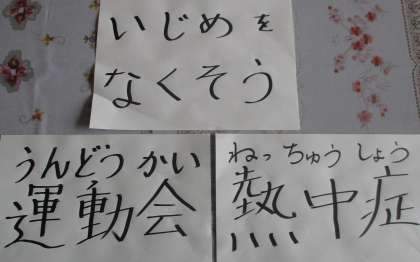 いじめを
なくそう
うんどうかい
運動会
ねっちゅうしょう
熱中症